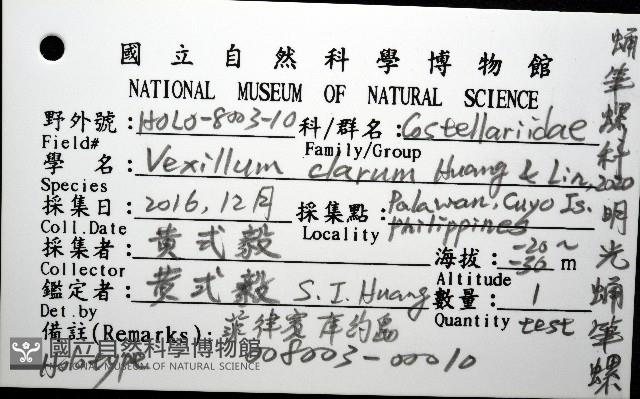 國立自然科學博物館
NATIONAL MUSEUM OF NATURAL SCIENCE
野外號：HOLO-8003-10 科/群名：Costellariidae
Field# Family/Group
學 名：Vexillum clarum Huang & Lin, 2020
Species
採集日：2016, 12月 採集點：Palawan, Cuyo Is.
Coll.Date Locality Philippines
採集者：黃式毅 海拔：-20~-30 m
Collector Altitude
鑑定者：黃式毅 S. I. Huang 數量：1
Det.by Quantity test
備註(Remarks)：菲律賓 庫約島
Holotype 008003-00010
蛹筆螺科 明光蛹筆螺
國立自然科學博物館
NATIONAL MUSEUM OF NATURAL SCIENCE